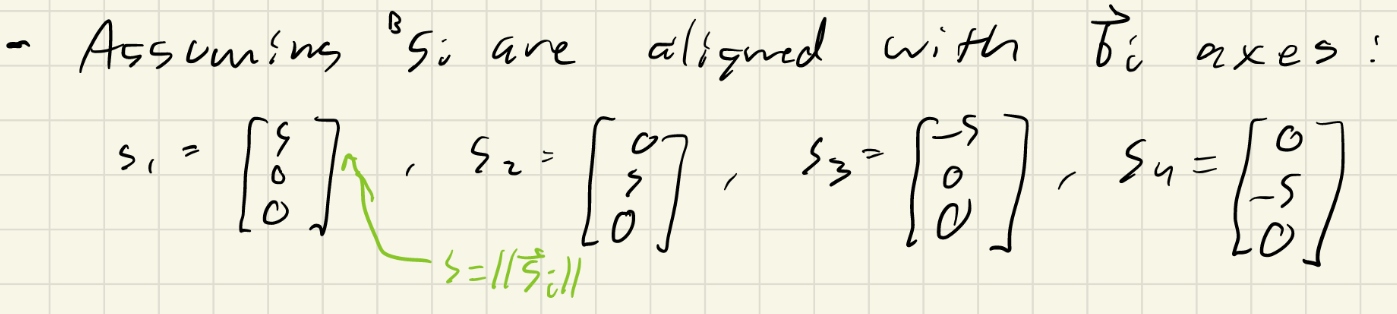 - Assuming ᴮSᵢ are aligned with b⃗ᵢ axes:
s₁ = [s 0 0], s₂ = [0 s 0], s₃ = [-s 0 0], s₄ = [0 -s 0]
s = ||s⃗ᵢ||